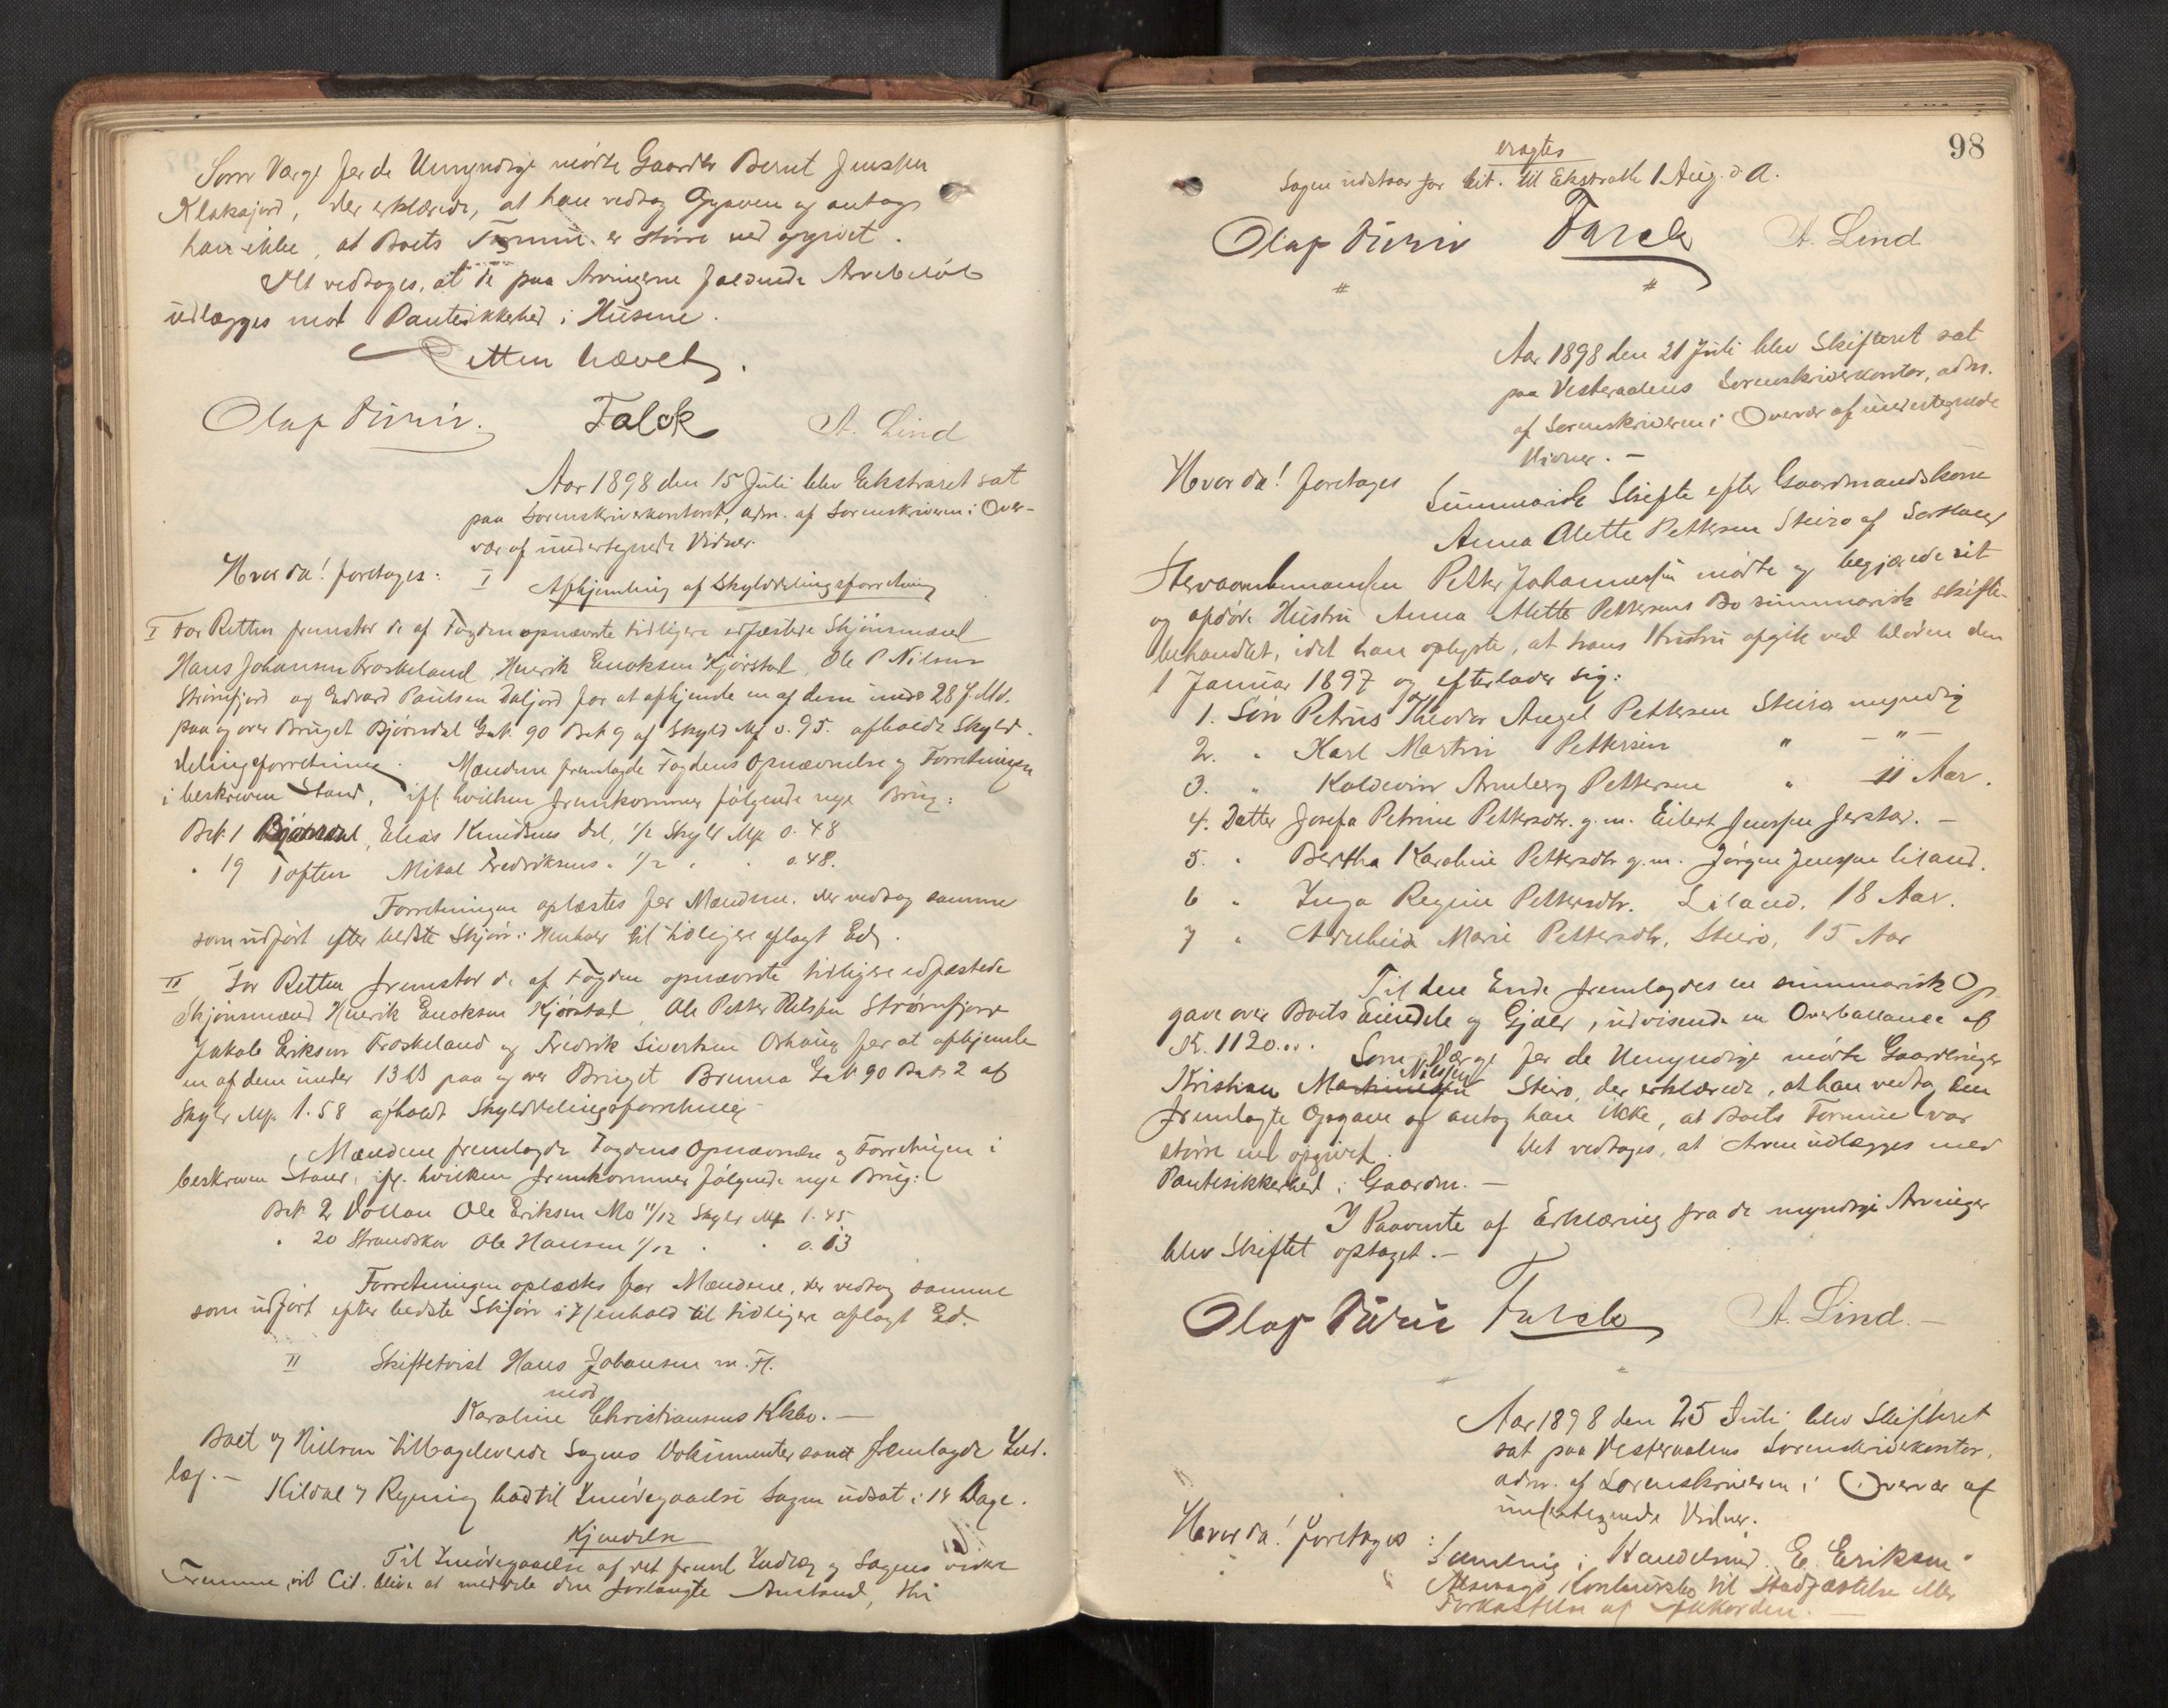 Som Værge for de Umyndige mødte Gaardbr Bernt Jenssen
Klaksjord, der erklærede, at han vedtog Opgaven og antog
han ikke, at Boets Formue er større end opgivet.
Det vedtoges, at de paa Arvingerne faldende Arvebeløb
udlægges mod Pantesikkerhed i Husene.
Retten hævet.
Olaf Falck A. Lind
Aar 1898 den 15 Juli blev Ekstraret sat
paa Sorenskriverkontoret, adm. af Sorenskriveren i Over-
vær af undertegnede Vidner.
Hvor da! foretages: I Afhjemling af Skylddelingsforretning
I For Retten fremstod de af Fogden opnævnte tidligere edfæstede Skjønsmænd
Hans Johansen Froskeland, Henrik Enoksen Kjørstad, Ole P Nilsen
Strømfjord og Edvard Paulsen Daljord for at afhjemle en af dem under 28 f. Md.
paa og over Bruget Bjørndal G.N. 90 B.N. 9 af Skyld Mk 0.95. afholdt Skyld-
delingsforretning. Mændene fremlagde Fogdens Opnævnelse og Forretningen
i beskreven Stand, ifl. hvilken fremkommer følgende nye Brug:
B.N. 1 Bjørndal, Elias Knudsens Del, 1/2 Skyld Mk 0.48
" 19 Toften Mikal Fredriksens " 1/2 " " 0.48.
Forretningen oplæstes for Mændene, der vedtog samme
som udført efter bedste Skjøn i Henhold til tidligere aflagt Ed.
II For Retten fremstod de af Fogden opnævnte tidligere edfæstede
Skjønsmænd Henrik Enoksen Kjørstad, Ole Petter Nilssen Strømfjord
Jakob Eriksen Froskeland og Fredrik Sivertsen Oshaug for at afhjemle
en af dem under 13 ds paa og over Bruget Bruna G.N. 90 B.N. 2 af
Skyld Mk. 1.58 afholdt Skylddelingsforretning
Mændene fremlagde Fogdens Opnævnelse og Forretningen i
beskreven Stand, ifl. hvilken fremkommer følgende nye Brug:
B.N. 2 Vollan Ole Eriksen Mo 11/12 Skyld Mk 1.45
" 20 Strandskov Ole Hansen 1/12 " " 0.13
Forretningen oplæstes for Mændene, der vedtog samme
som udført efter bedste Skjøn i Henhold til tidligere aflagt Ed.
II Skiftetvist Hans Johansen m. Fl.
mod
Karoline Christiansens
Boet v/ Nielsen tilbageleverede Sagens Dokumenter samt fremlagde Ind-
læg.— Kildal v/ Rynnig bad til Imødegaaelse Sagen udsat i 14 Dage.
Kjendelse
Til Imødegaaelse af det freml. Indlæg og Sagens videre
Fremme vil Cit. blive at meddele den forlangte Anstand, thi
98
eragtes
Sagen udstaar for Cit. til Ekstrath 1 Aug. d. A.
Olaf Falck A. Lind
Aar 1898 den 21 Juli blev Skifteret sat
paa Vesteraalens Sorenskriverkontor, adm.
af Sorenskriveren i Overvær af undertegnede
Vidner.—
Hvor da! foretages Summarisk Skifte efter Gaardmandskone
Anna Alette Pettersen Steiro af Sortland
Petter Johannessen mødte og begjærede sit
og afdøde Hustru Anna Alette Pettersens Bo summarisk skifte-
behandlet, idet han oplyste, at hans Hustru afgik ved Døden den
1 Januar 1897 og efterlader sig:
1. Søn Petrus Theodor Angel Pettersen Steiro myndig
2. " Karl Martin Pettersen " —"—
3. " Koldevin Arnberg Pettersen " 11 Aar.
4. Datter Josefa Petrine Pettersdtr. g.m. Eilert Jenssen Jerstad.—
5. " Bertha Karoline Pettersdtr g.m. Jørgen Jenssen Liland.
6 " Inga Regine Pettersdtr. Liland, 18 Aar.
7 " Marie Pettersdtr, Steiro, 15 Aar
Til den Ende fremlagdes en summarisk Op
gave over Boets Eiendele og Gjæld, udvisende en Overballance af
K. 1120.00. Som Værge for de Umyndige mødte Gaardbruger
Kristian Martinussen Nilssen Steiro, der erklærede, at han vedtog den
fremlagte Opgave og antog han ikke, at Boets Formue var
større end opgivet. Det vedtoges, at Arven udlægges med
Pantesikkerhed i Gaarden.—
I Paavente af Erklæring fra de myndige Arvinger
blev Skiftet optaget.—
Olaf Falck A. Lind.—
Aar 1898 den 25 Juli blev Skifteret
sat paa Vesteraalens Sorenskriverkontor,
adm. af Sorenskriveren i Overvær af
undertegnede Vidner.
Hvor da! foretages: Samling i Handelsmd. E. Eriksen
Konkursbo til Stadfæstelse eller
Forkastelse af Akkorden.—